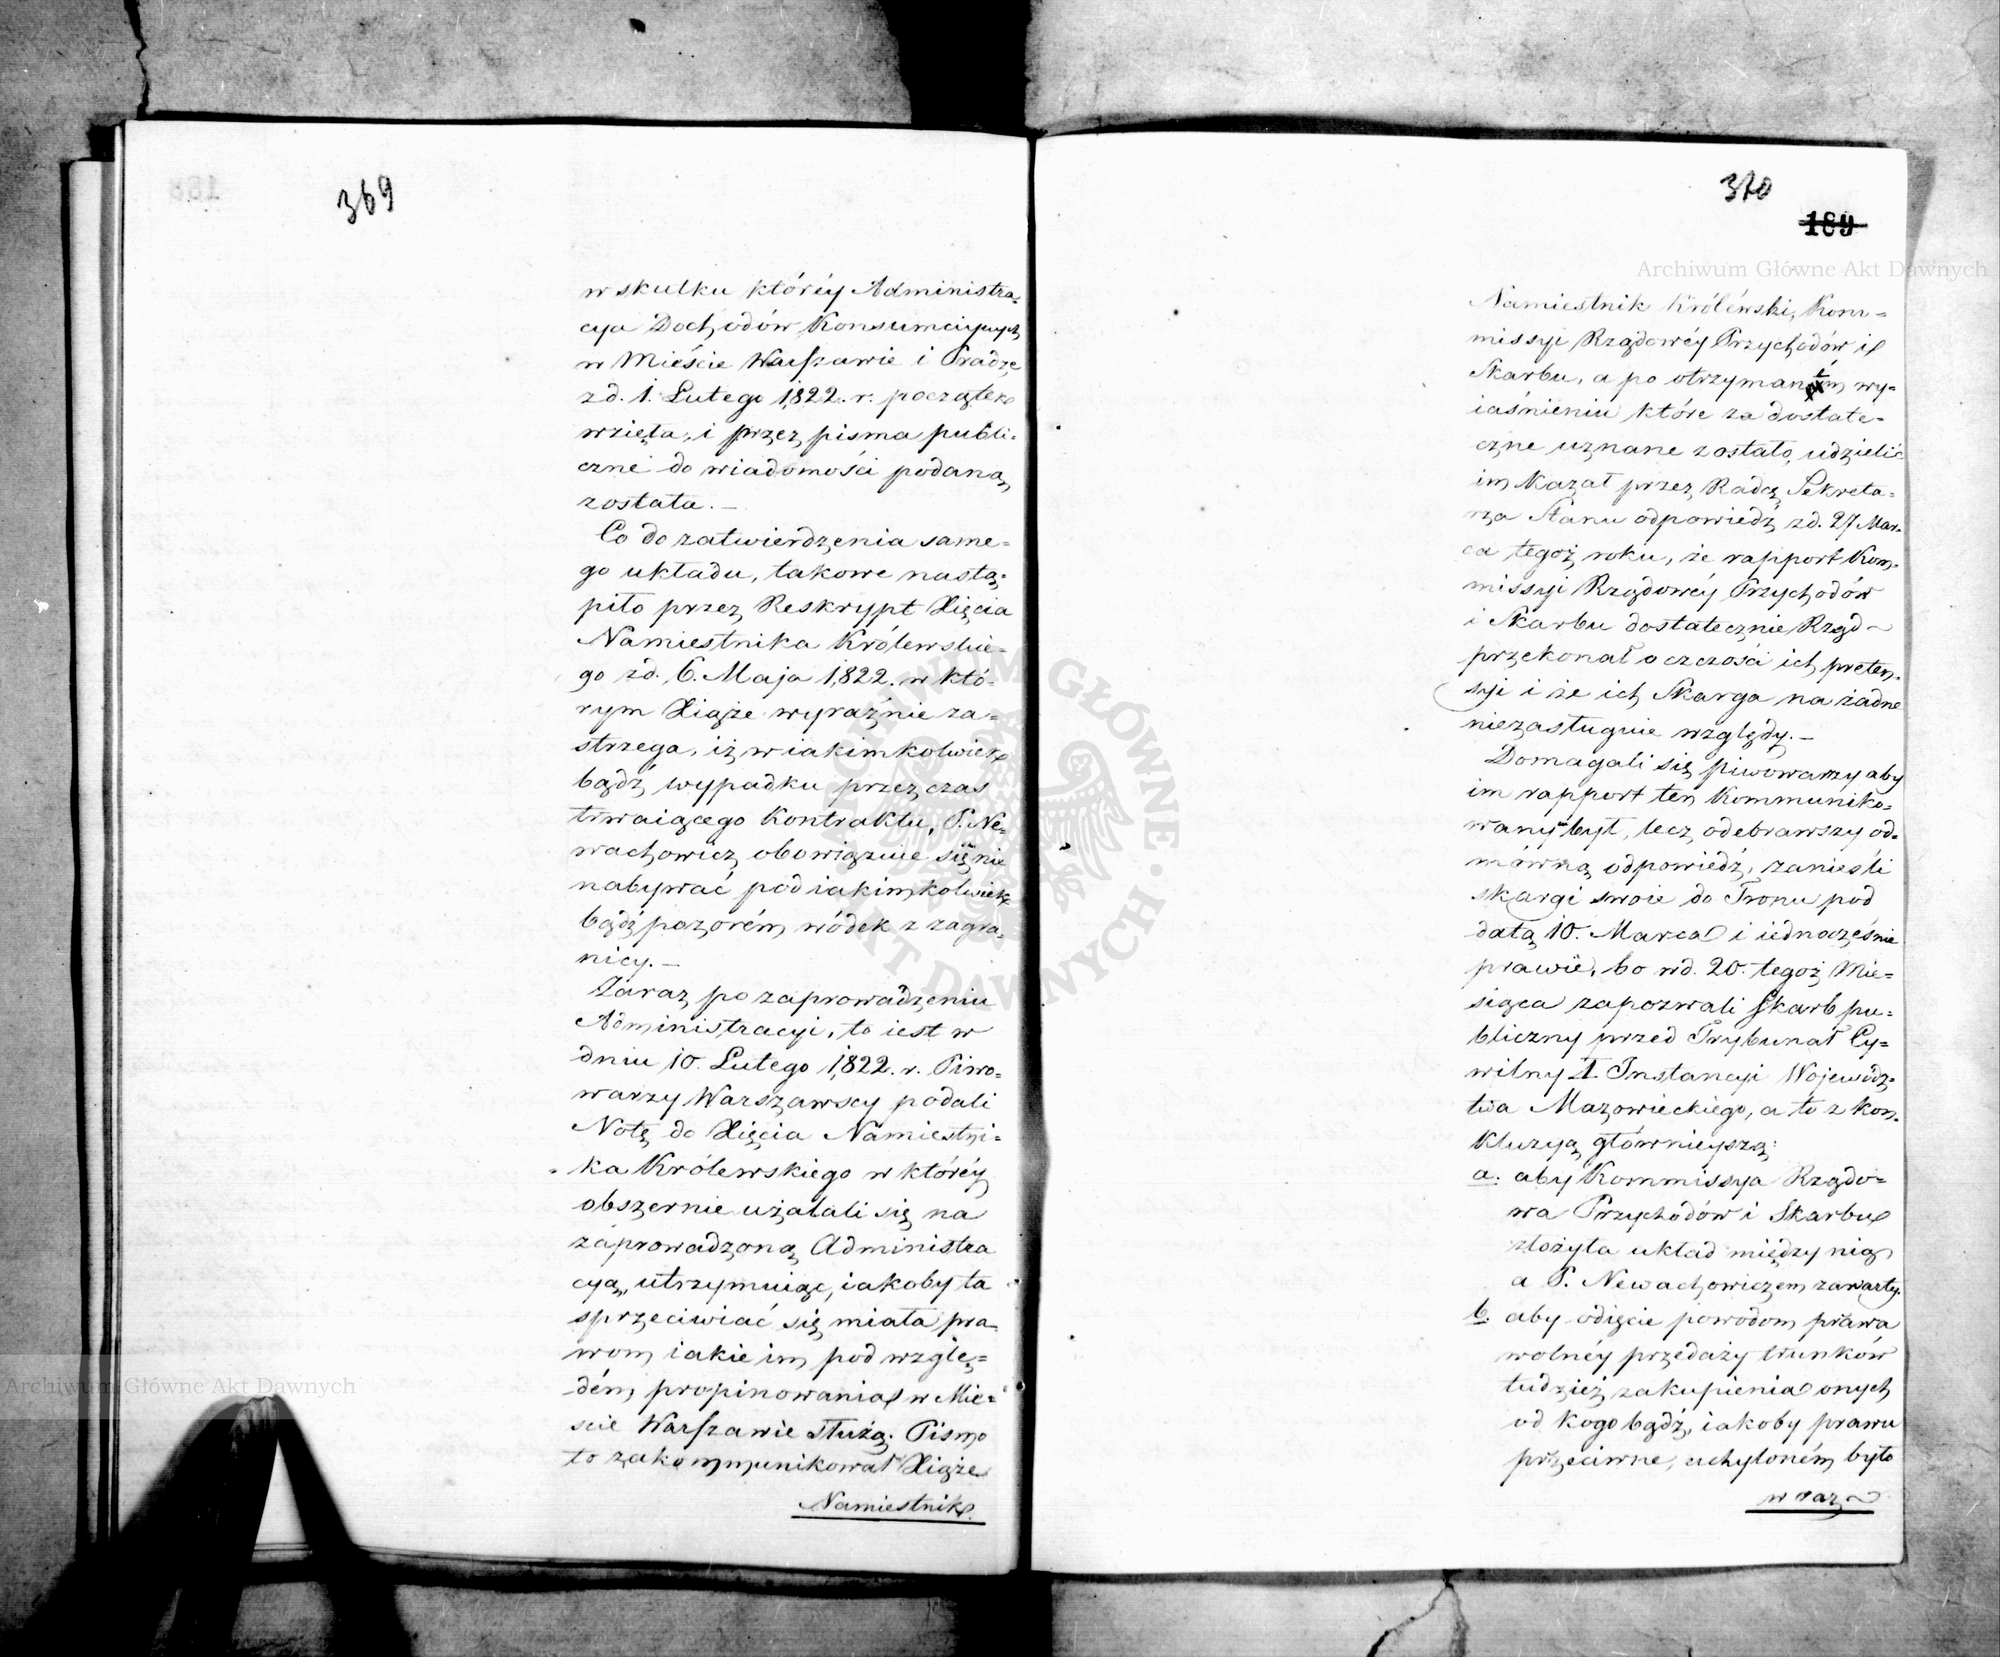 369
w skutku któréy Administra-
cya Dochodów Konsumcyinych
w Mieście Warszawie i Pradze
z d. 1. Lutego 1822. r. początek
wzięta, i przez pisma publi-
czne do wiadomości podaną
została. —
Co do zatwierdzenia same-
go układu, takowe nastą-
piło przez Reskrypt Xięcia
Namiestnika Królewskie-
go z d. 6. Maja 1822. w któ-
rym Xiąże wyraźnie za-
strzega, iż w iakimkolwiek
bądź wypadku przez czas
trwaiącego Kontraktu, P. Ne-
wachowicz obowiązuie się nie
nabywać pod iakimkolwiek
bądź pozorém wódek z zagra-
nicy. —
Zaraz po zaprowadzeniu
Administracyi, to iest w
dniu 10. Lutego 1822. r. Piwo-
warzy Warszawscy podali
Notę do Xięcia Namiestni-
ka Królewskiego w któréy
obszernie użalali się na
zaprowadzoną Administra
cyą, utrzymuiąc, iakoby ta
sprzeciwiać się miała pra-
wom iakie im pod wzglę-
dém propinowania w Mie-
ście Warszawie służą. Pismo
to zakommunikował Xiąże
Namiestnik
370
189
Archiwum Główne Akt Dawnych
Namiestnik Królewski, Kom-
missyi Rządowéy Przychodów i
Skarbu, a po otrzymaném wy-
iaśnieniu które za dostate-
czne uznane zostało, udzielić
im kazał przez Radcę Sekreta-
rza Stanu odpowiedź z d. 27 Mar-
ca tegoż roku, że rapport Kom-
missyi Rządowéy Przychodów
i Skarbu dostatecznie Rząd
przekonał o czczości ich preten-
syi i że ich Skarga na żadne
niezasługuie względy. —
Domagali się piwowarzy aby
im rapport ten Kommuniko-
wany był, lecz odebrawszy od-
mówną odpowiedź, zanieśli
skargi swoie do Tronu pod
datą 10. Marca i iednocześnie
prawie, bo w d. 20. tegoż Mie-
siąca zapozwali Skarb pu-
bliczny przed Trybunał Cy-
wilny I. Instancyi Wojewódz-
twa Mazowieckiego, a to z kon-
kluzyą główniejszą:
a. aby Kommissya Rządo-
wa Przychodów i Skarbu
złożyła układ między nią
a P. Newachowiczem zawarty.
b. aby odięcie powodom prawa
wolnéy przedaży trunków
tudzież zakupienia onych
od kogo bądź, iakoby prawu
przeciwne, uchyloném było
w raz
ARCHIWUM GŁÓWNE AKT DAWNYCH
Archiwum Główne Akt Dawnych